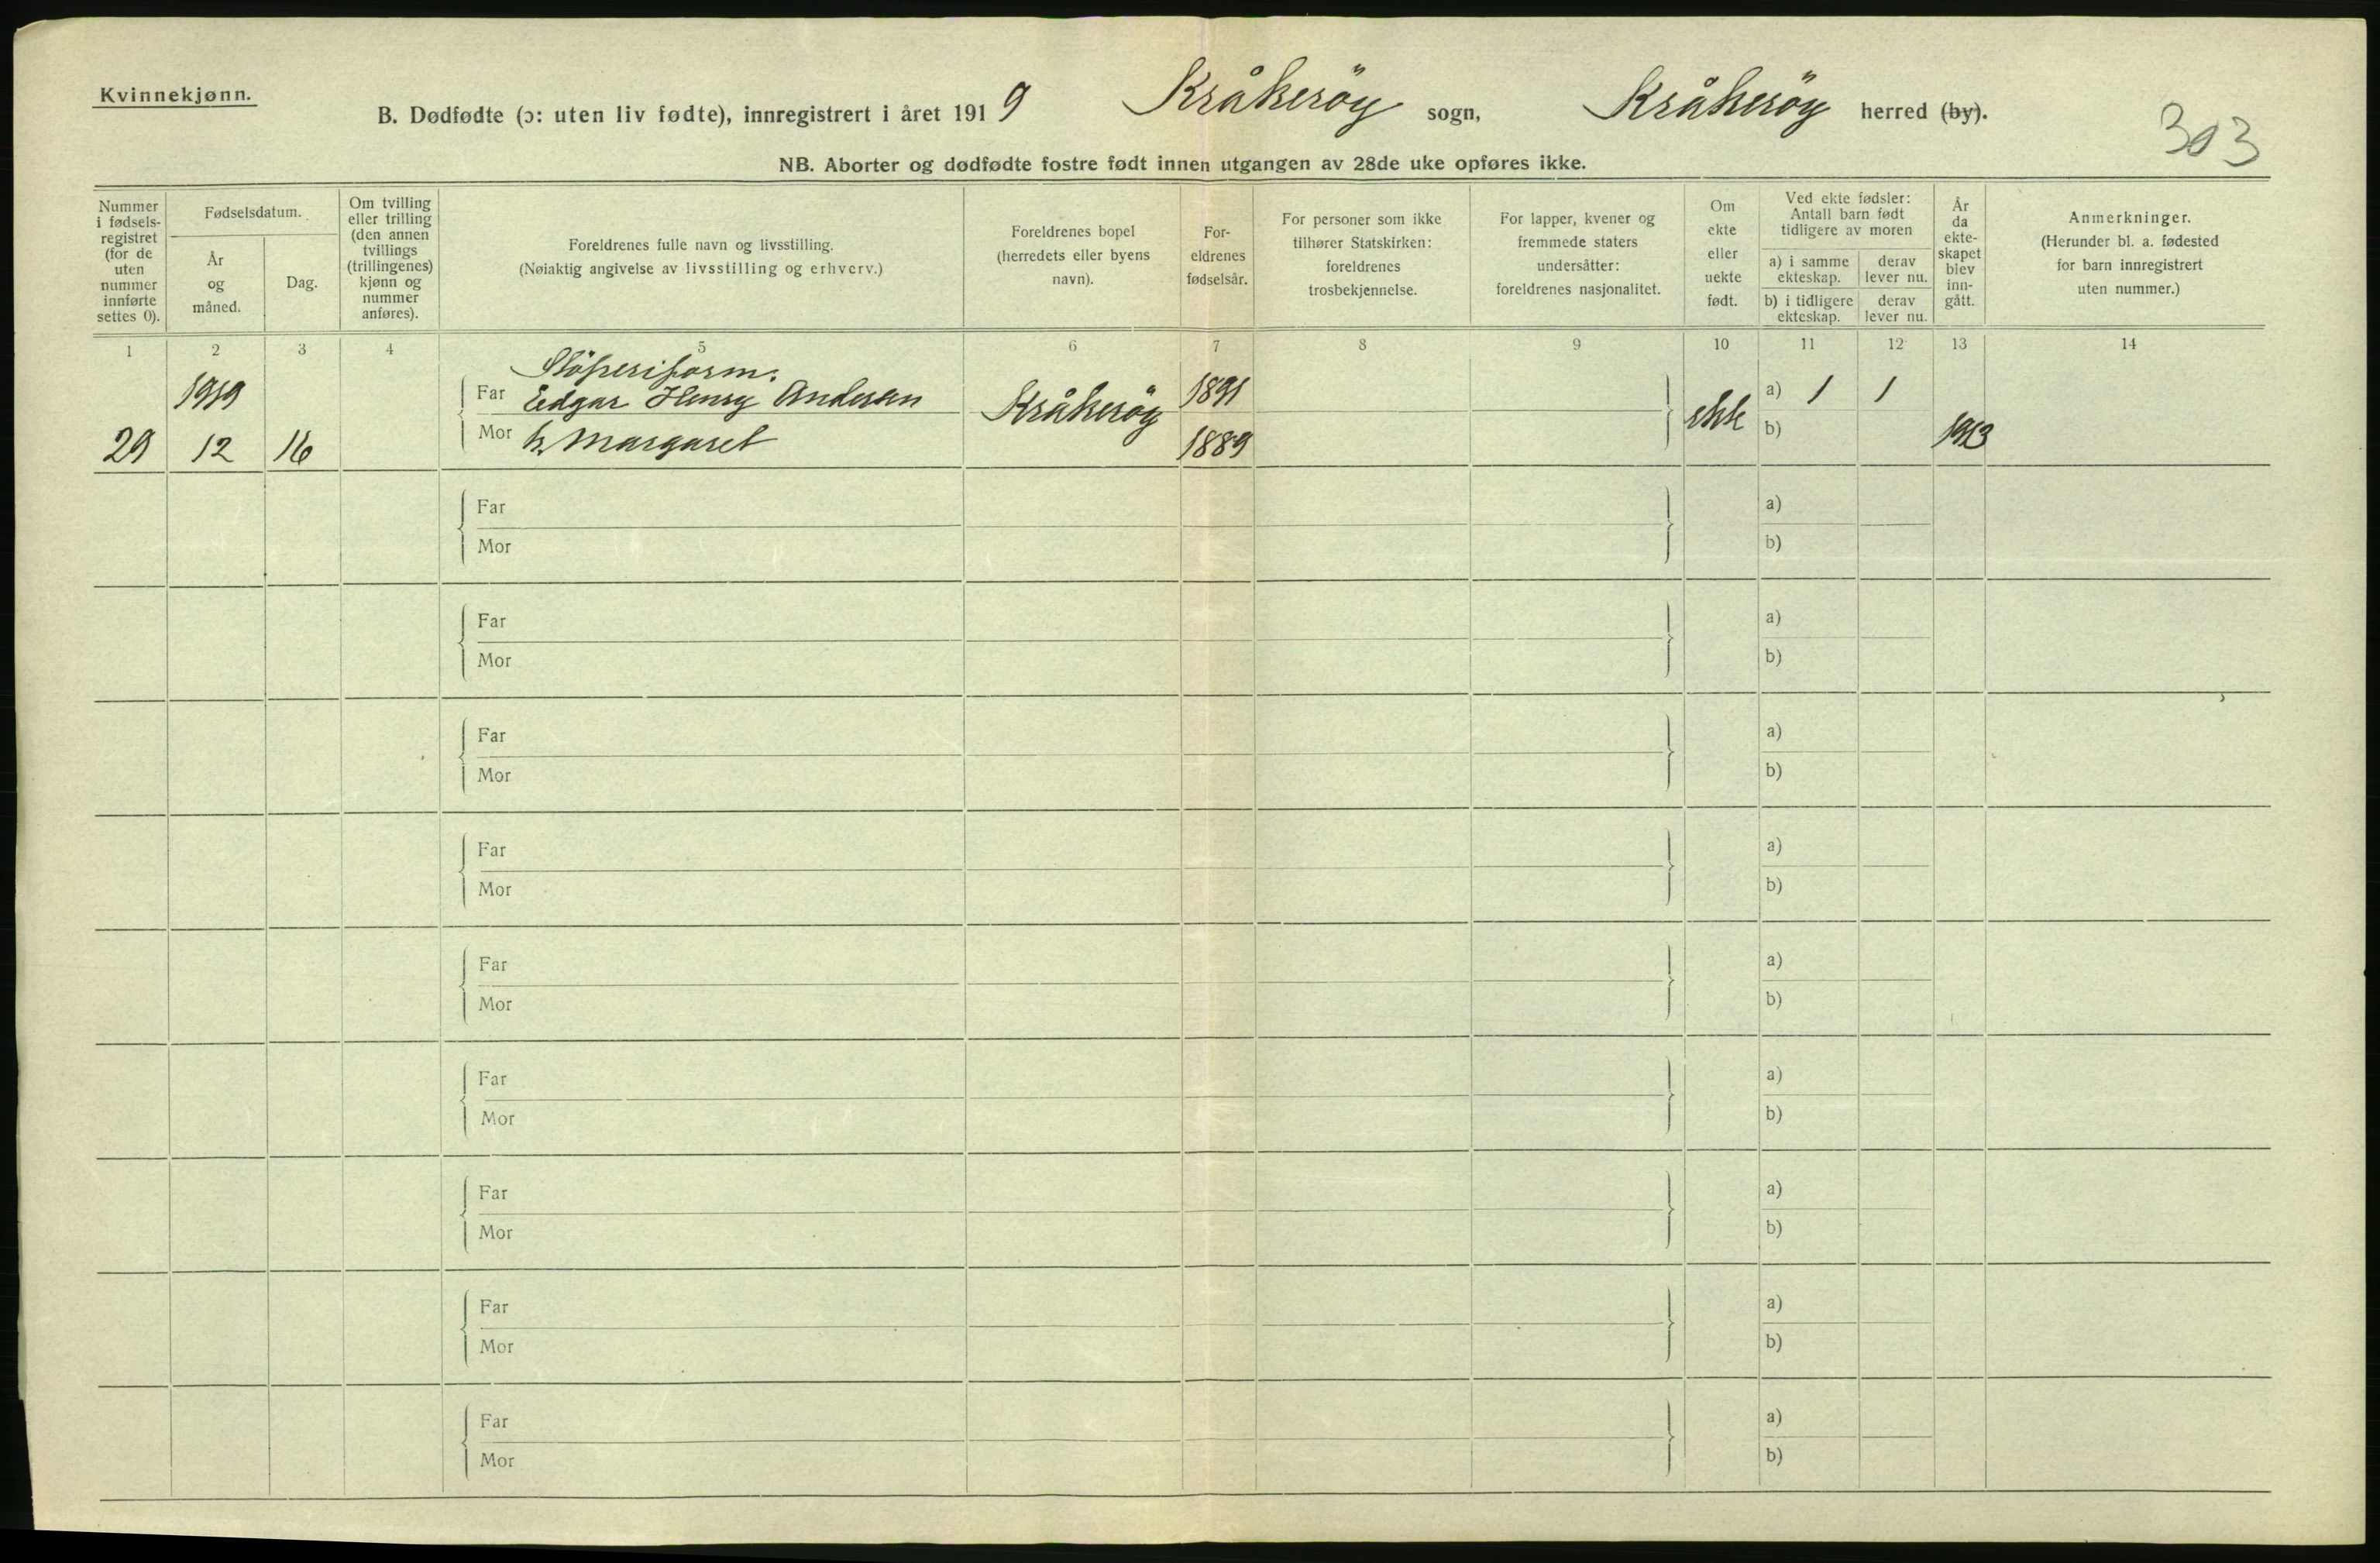 Kvinnekjønn.
B. Dødfødte (ɔ: uten liv fødte), innregistrert i året 1919 Kråkeröy sogn, Kråkeröy herred (by).
303
NB. Aborter og dødfødte fostre født innen utgangen av 28de uke opføres ikke.
Nummer
i fødsels-
registret
(for de
uten
nummer
innførte
settes 0).
Fødselsdatum.
År
og
måned.
Dag.
Om tvilling
eller trilling
(den annen
tvillings
(trillingenes)
kjønn og
nummer
anføres).
Foreldrenes fulle navn og livsstilling.
(Nøiaktig angivelse av livsstilling og erhverv.)
Foreldrenes bopel
(herredets eller byens
navn).
For-
eldrenes
fødselsår.
For personer som ikke
tilhører Statskirken:
foreldrenes
trosbekjennelse.
For lapper, kvener og
fremmede staters
undersåtter:
foreldrenes nasjonalitet.
Om
ekte
eller
uekte
født.
Ved ekte fødsler:
Antall barn født
tidligere av moren
a) i samme
ekteskap.
derav
lever nu.
b) i tidligere
ekteskap.
derav
lever nu.
År
da
ekte-
skapet
blev
inn-
gått.
Anmerkninger.
(Herunder bl. a. fødested
for barn innregistrert
uten nummer.)
1 2 3 4 5 6 7 8 9 10 11 12 13 14
Stöperiform.
1919 Far Edgar Henry Andersen Kråkeröy 1891 ekte a) 1 1
29 12 16 Mor h. Margaret 1889 b) 1913
Far a)
Mor b)
Far a)
Mor b)
Far a)
Mor b)
Far a)
Mor b)
Far a)
Mor b)
Far a)
Mor b)
Far a)
Mor b)
Far a)
Mor b)
Far a)
Mor b)